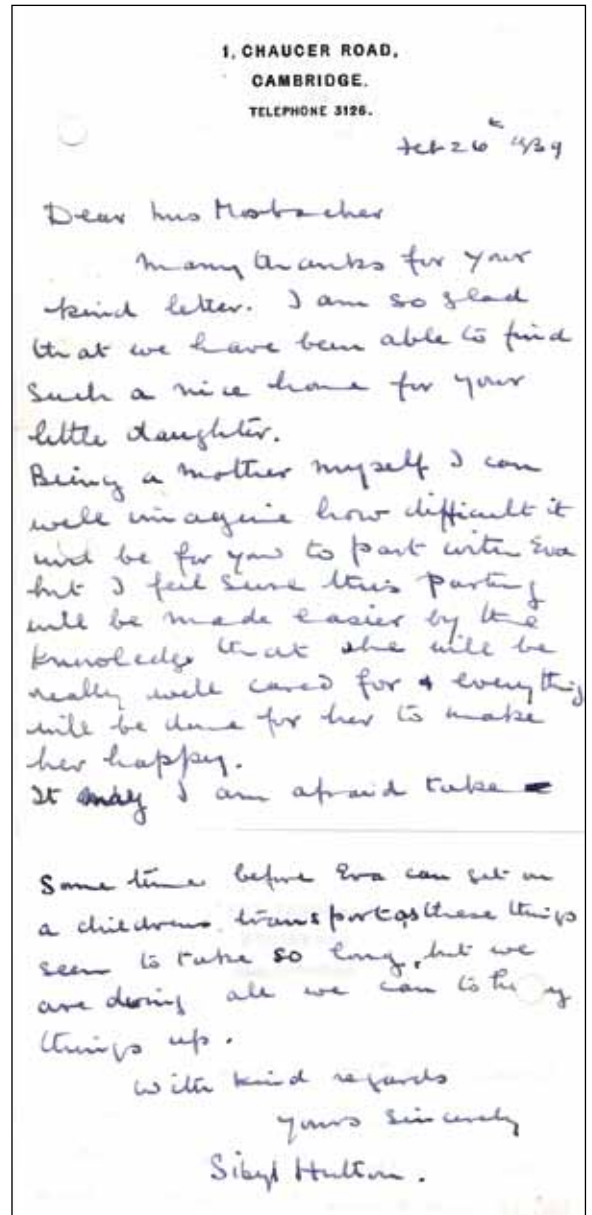 1, CHAUCER ROAD,
CAMBRIDGE.
TELEPHONE 3126.
Feb 26th 1939
Dear Mrs Mosbacher
Many thanks for your
kind letter. I am so glad
that we have been able to find
such a nice home for your
little daughter.
Being a mother myself I can
well imagine how difficult it
must be for you to part with Eva
but I feel sure this parting
will be made easier by the
knowledge that she will be
really well cared for & everything
will be done for her to make
her happy.
It may I am afraid take
some time before Eva can get on
a childrens transport as these things
seem to take so long, but we
are doing all we can to
things up.
With kind regards
Yours sincerely
Sibyl Hutton.